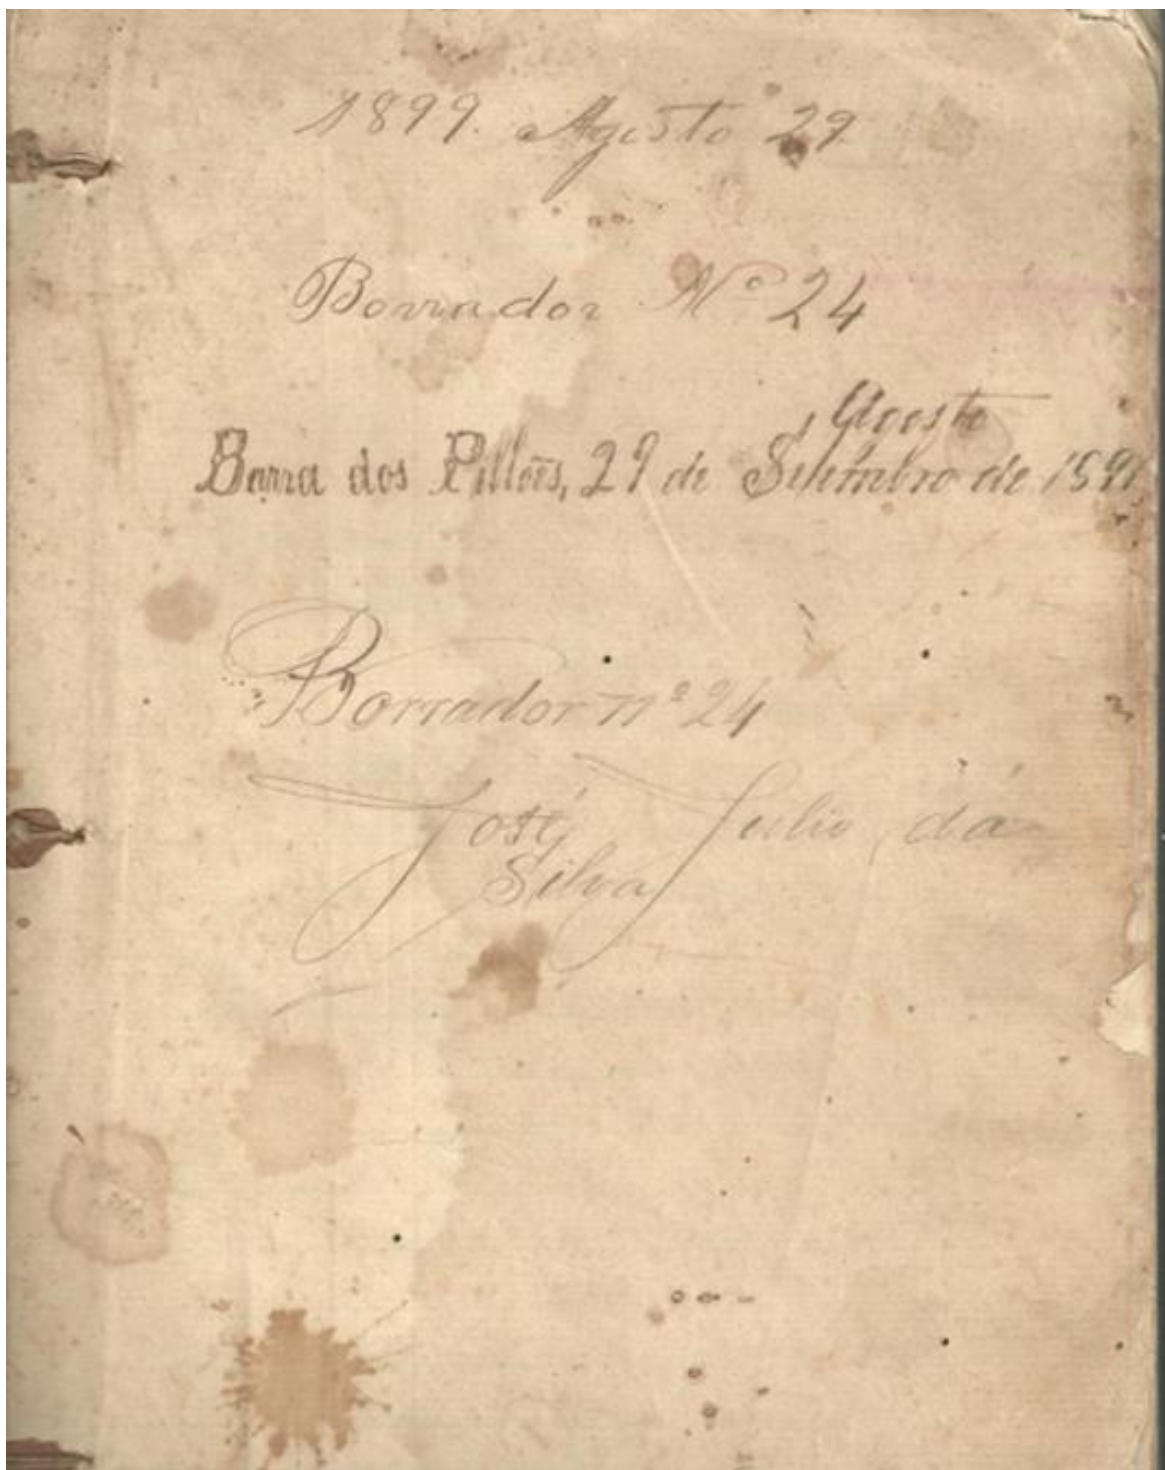 1899. Agosto 29
Borrador Nº 24
Agosto
Barra dos Pillões, 29 de Setembro de 189
Borrador nº 24
José Julio dá
Silva